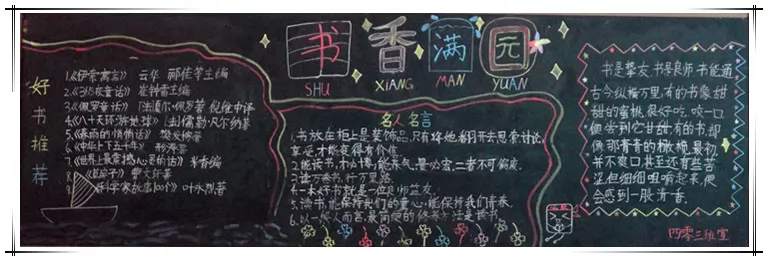 书香满园
SHU XIANG MAN YUAN
好书推荐
1.《伊索寓言》 云华 郦佳等主编
2.《365夜童话》 崔钟雷主编
3.《佩罗童话》 [法]诺尔·佩罗著 倪维中译
4.《八十天环游地球》 [法]儒勒·凡尔纳著
5.《春雨的悄悄话》 樊发稼著
6.《中华上下五千年》
7.《世界上最震撼心灵的话》
8.《草房子》 曹文轩著
9.《科学家故事100个》 叶永烈著
名人名言
1.书放在柜上是装饰品,只有将她翻开去思索讨论,
享受,才能变得有价值。
2.能读书,才必博;能养气,量必宏;二者不可偏废。
3.读万卷书,行万里路。
4.一本好书就是一位良师益友。
5.读书,能保持我们的童心;能保持我们青春。
6.以一般人而言,最简便的修养方法是读书。
书是挚友,书是良师,书能通
古今纵横万里,有的书像甜
甜的蜜桃,很好吃,咬一口
便尝到它甘甜,有的书,却
像那青青的橄榄,最初
并不爽口,甚至还有些苦
涩,但细细咀嚼起来,便
会感到一股清香。
四零三班宣